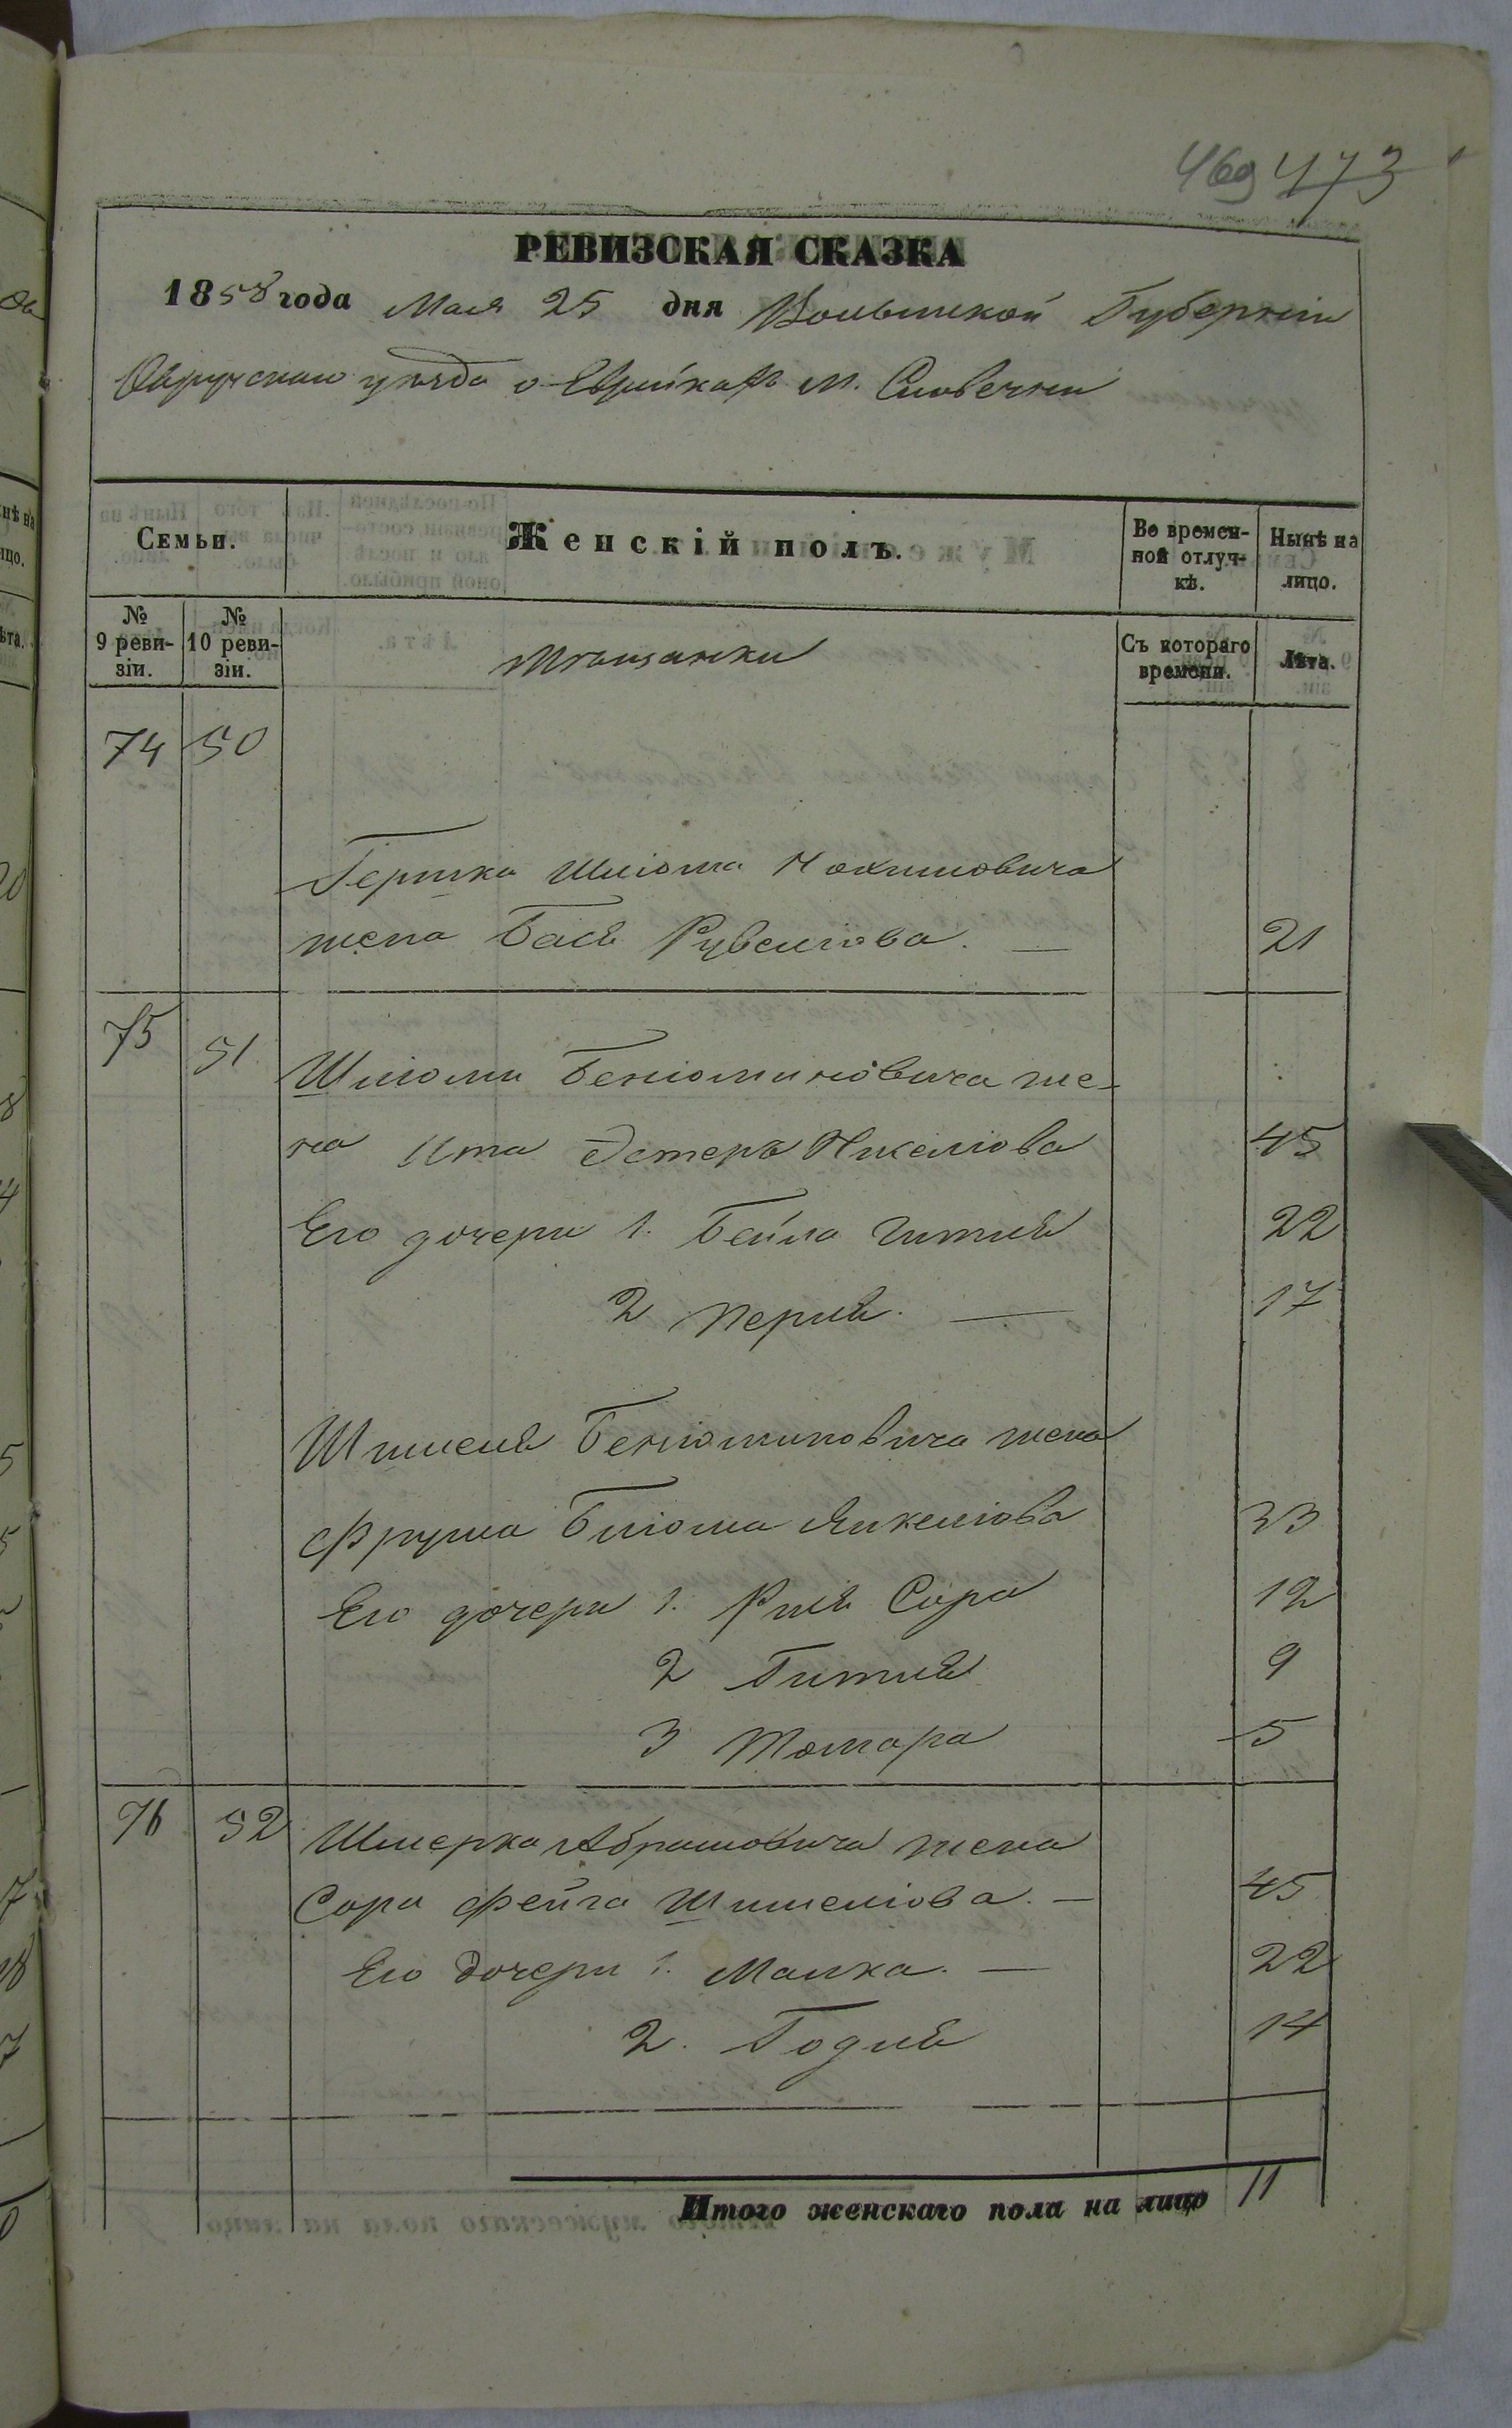 469 473
РЕВИЗСКАЯ СКАЗКА
1858 года Мая 25 дня Волынской Губерніи
Овручскаго уѣзда о Еврейкахъ М. Словечни
Семьи.
Женскій полъ.
Во временной отлучкѣ.
Нынѣ на лицо.
№ 9 ревизіи.
№ 10 ревизіи.
Мѣщанки
Съ котораго времени.
Лѣта.
74 50
Гершка Шліома Нохимовича
жена Бася Рувелiова. 21
75 51
Шліоми Беніоминовича же-
на Ита Эстеръ Нихеміова 45
Его дочери 1. Бейла Гитля 22
2 Перля. 17
Шмуеля Беніоминовича жена
Фрума Бліома Янкеліова 33
Его дочери 1. Рися Сора 12
2 Гитля 9
3 Томара 5
76 52 Шмерка Абрамовича жена
Сора Фейга Шмуеліова. 45
Его дочери 1. Малка. 22
2. Годля 14
Итого женскаго пола на лицо 11